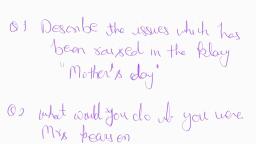 Q1 Describe the issues which has
been raised in the Play
"Mother's day"
Q2 what would you do if you were
Mrs pearson